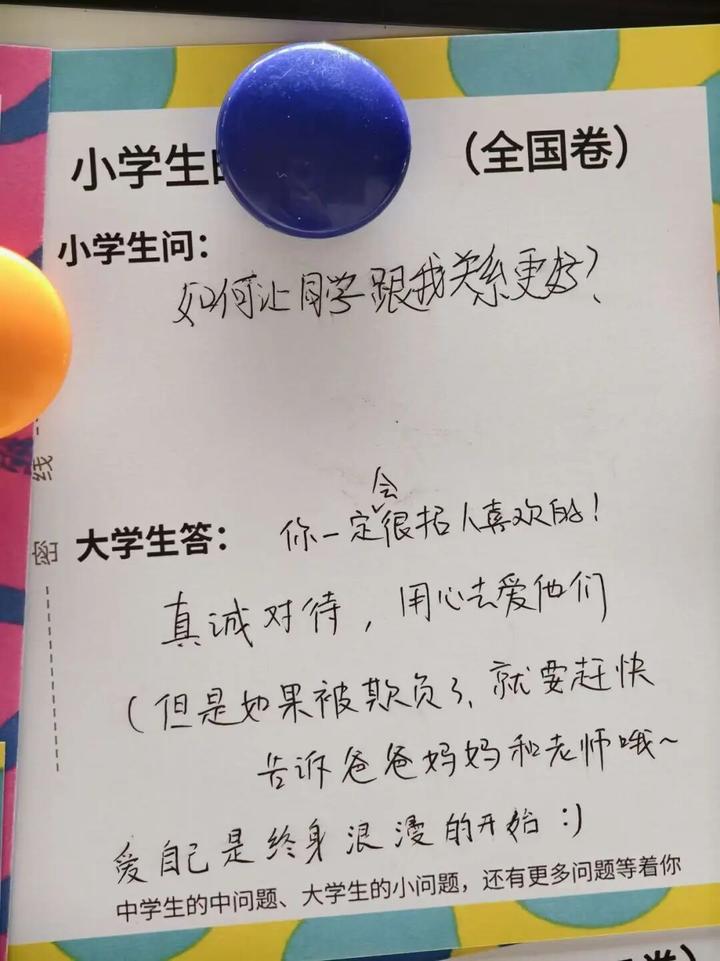 小学生 （全国卷）
小学生问：
如何让同学跟我关系更好？
会
大学生答： 你一定很招人喜欢的！
真诚对待，用心去爱他们
（但是如果被欺负了、就要赶快
告诉爸爸妈妈和老师哦~
爱自己是终身浪漫的开始 :)
中学生的中问题、大学生的小问题，还有更多问题等着你
线
密